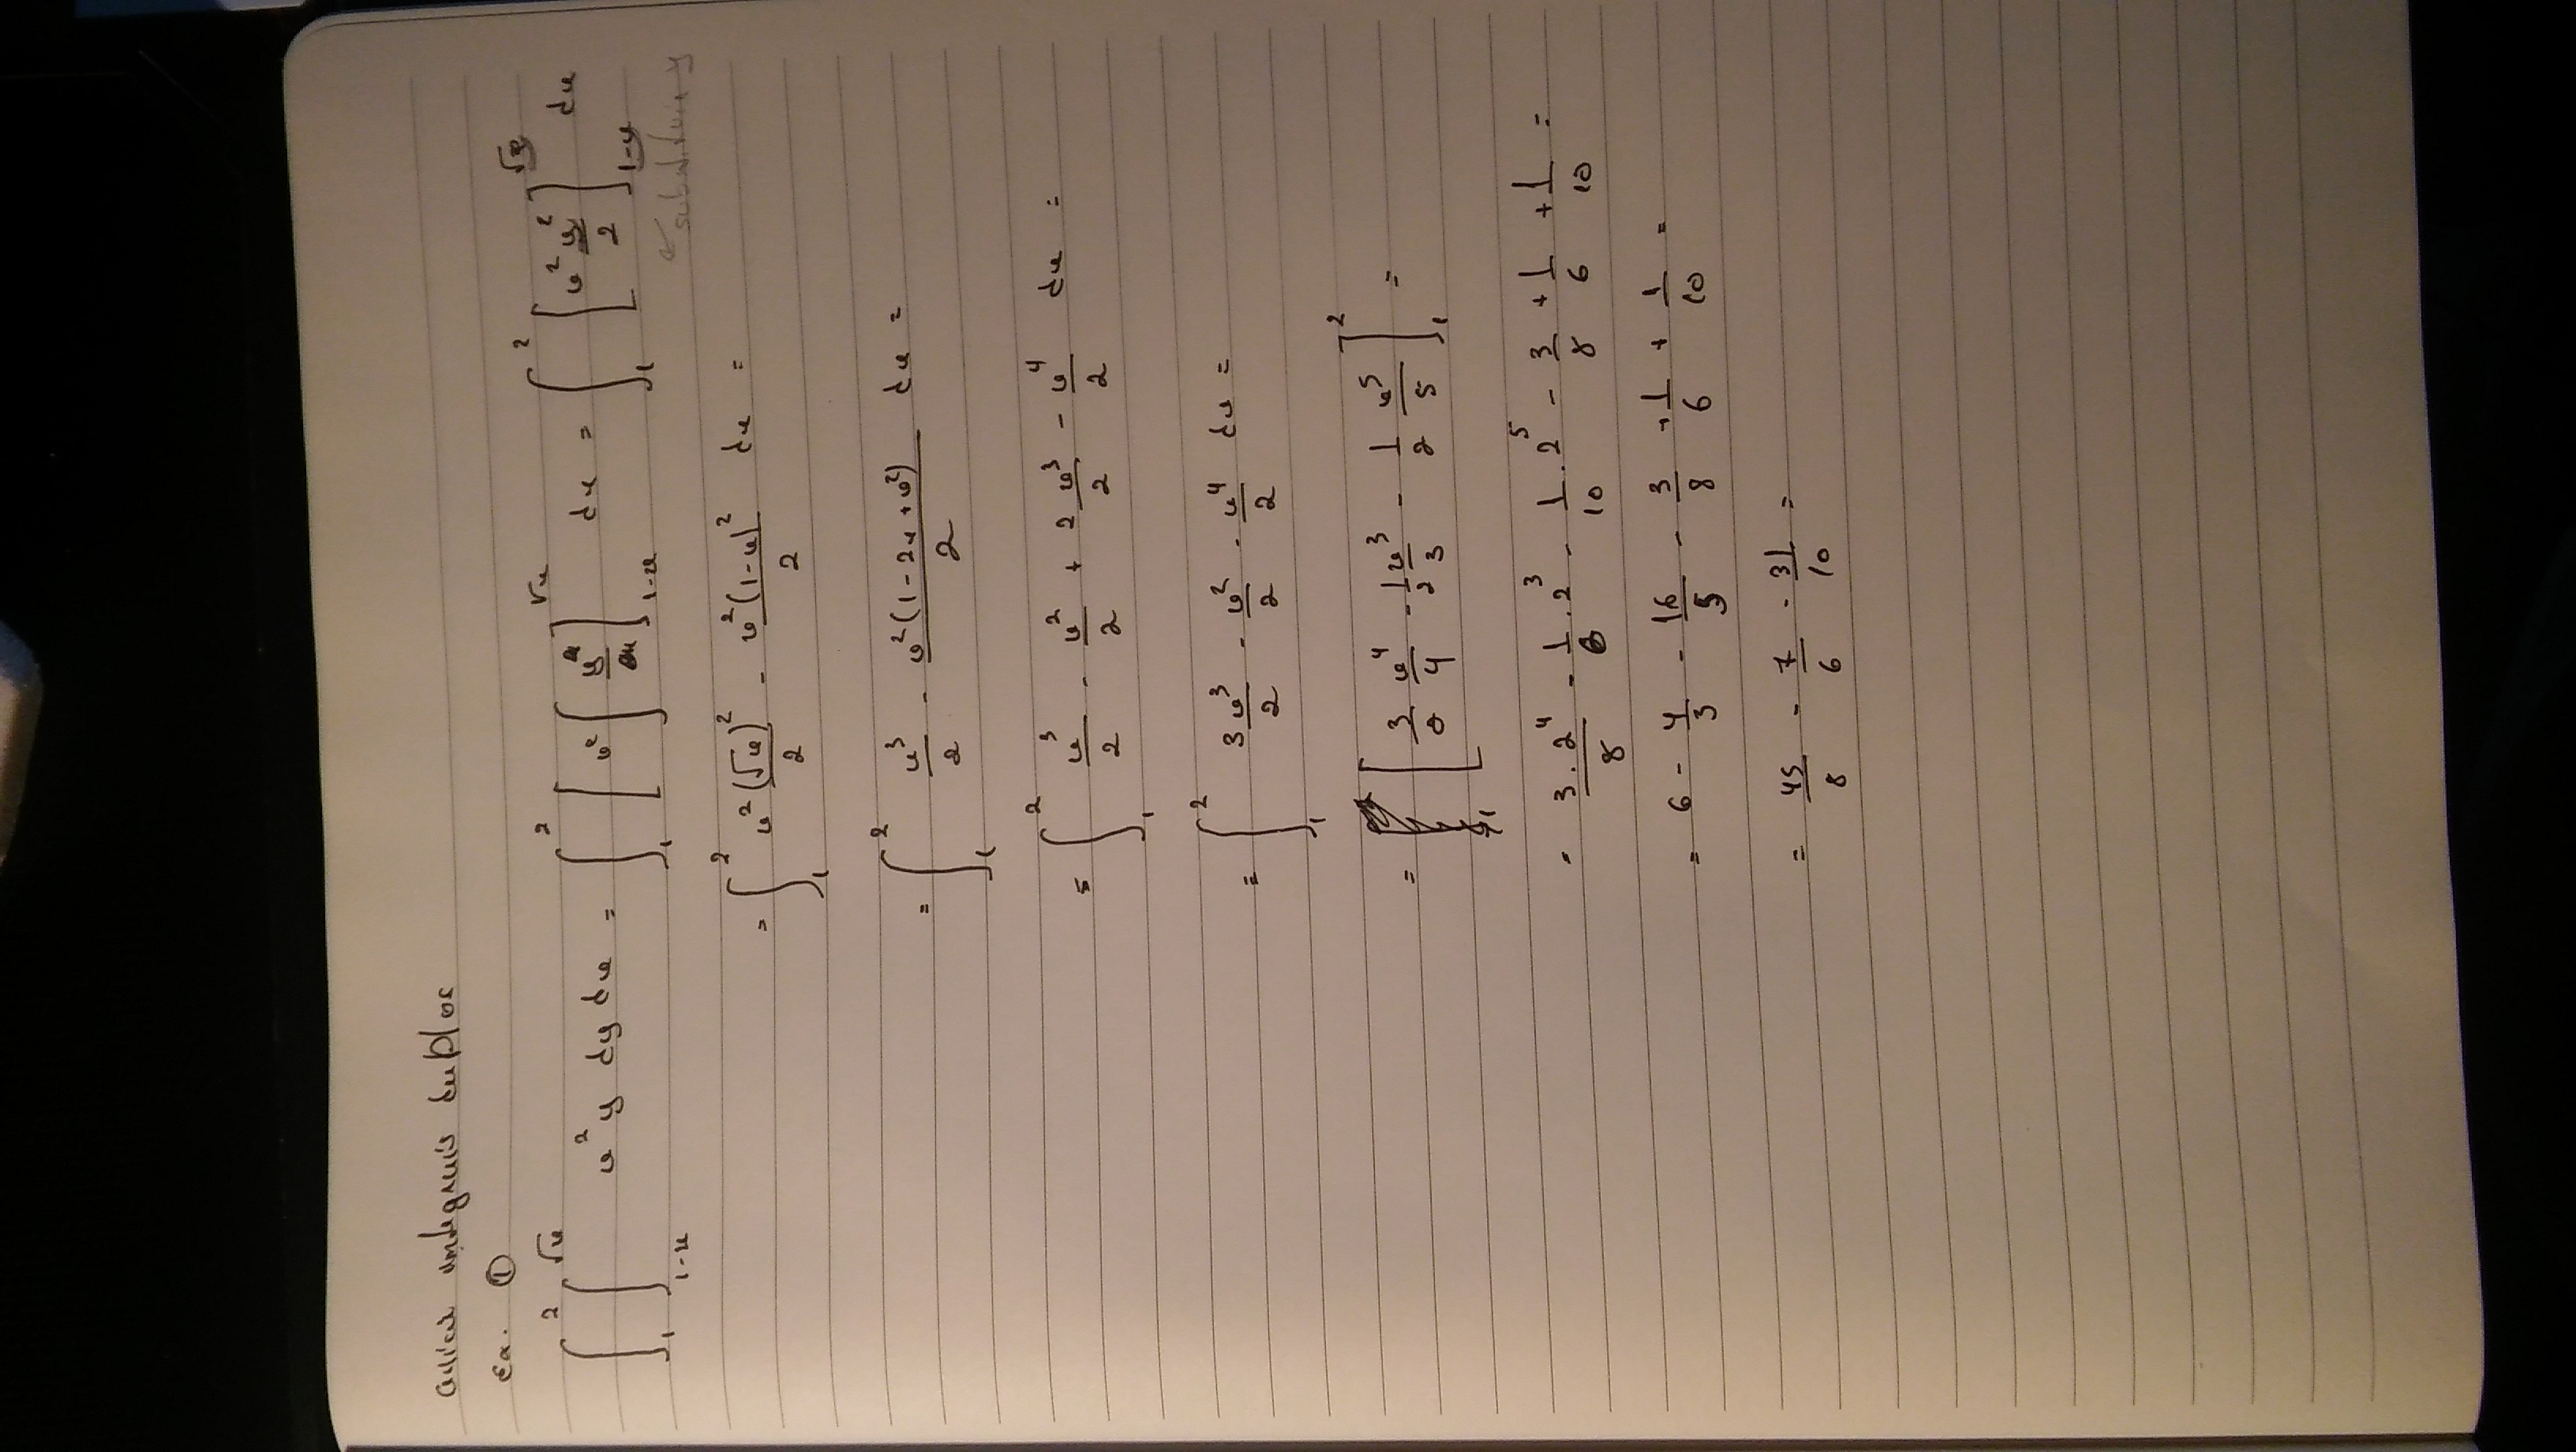 integrais duplos
Ex. ①
∫₁² ∫_{1-x}^{√x} x²y dy dx = ∫₁² [ x² ∫ y ]_{1-x}^{√x} dx = ∫₁² [ x² y²/2 ]_{1-x}^{√x} dx
= ∫₁² x²(√x)²/2 - x²(1-x)²/2 dx =
= ∫₁² x³/2 - x²(1-2x+x²)/2 dx =
= ∫₁² x³/2 - x²/2 + 2x³/2 - x⁴/2 dx =
= ∫₁² 3x³/2 - x²/2 - x⁴/2 dx =
= [ 3/2 x⁴/4 - 1/2 x³/3 - 1/2 x⁵/5 ]₁² =
= 3.2⁴/8 - 1/6 . 2³ - 1/10 . 2⁵ - 3/8 + 1/6 + 1/10 =
= 6 - 4/3 - 16/5 - 3/8 + 1/6 + 1/10 =
= 45/8 - 7/6 - 31/10 =